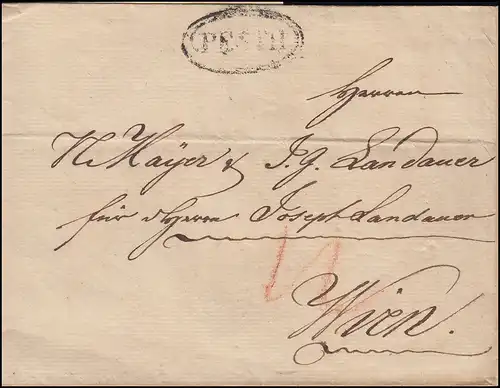 PESTH
Herren
N. Mayer & I. G. Landauer
für Herrn Joseph Landauer
Wien.